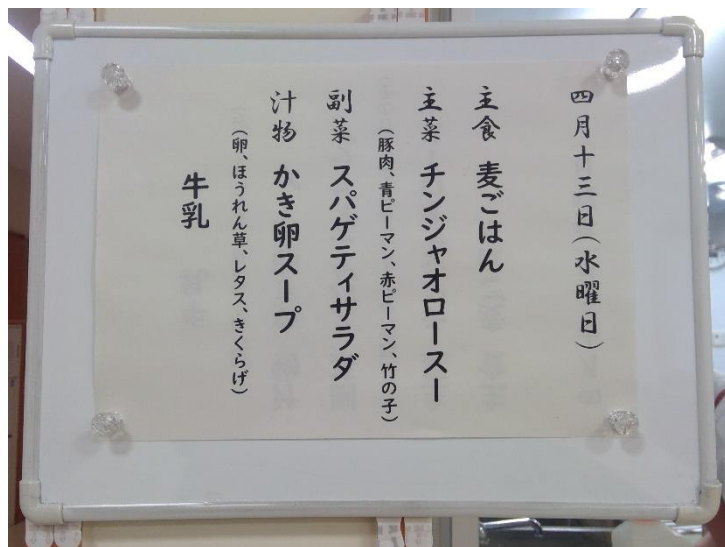 四月十三日(水曜日)
主食 麦ごはん
主菜 チンジャオロースー
(豚肉、青ピーマン、赤ピーマン、竹の子)
副菜 スパゲティサラダ
汁物 かき卵スープ
(卵、ほうれん草、レタス、きくらげ)
牛乳